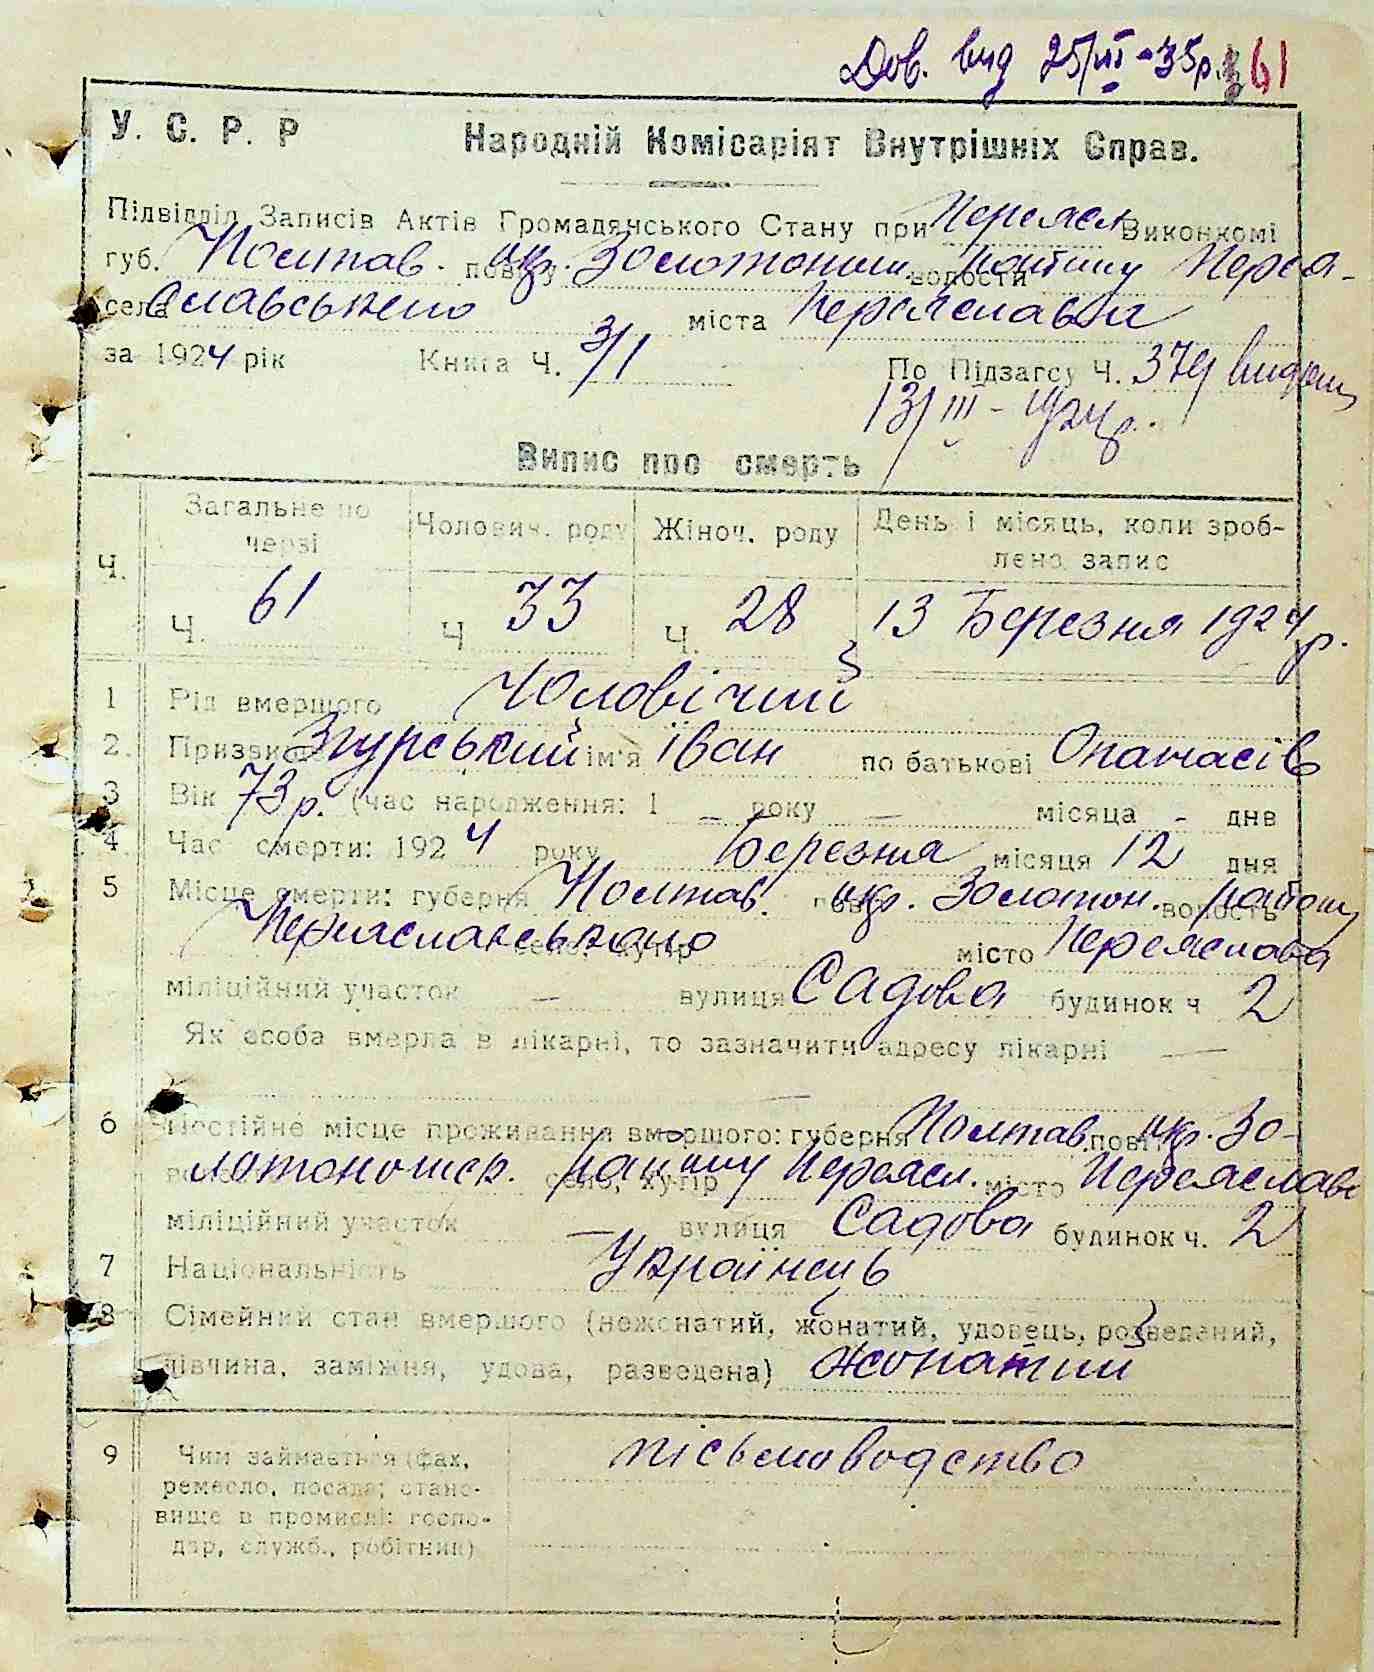 Дов. вид 25/III-35р. 61
У. С. Р. Р Народній Комісаріят Внутрішніх Справ.
Підвідділ Записів Актів Громадянського Стану при Переясл Виконкомі
губ. Полтав. повіту окр. Золотоніш. волости району Перея-
села славського міста Переяслава
за 1924 рік Книга Ч. 3/1 По Підзагсу Ч. 379
13/III - 1924р.
Випис про смерть
Ч. Загальне по черзі Чоловіч. роду Жіноч. роду День і місяць, коли зроб-
лено запис
Ч. 61 Ч 33 Ч. 28 13 Березня 1924 р.
1 Рід вмершого Чоловічий
2. Призвище Згурський ім'я Іван по батькові Опанасів
3 Вік 73 р. (час народження: 1 — року — місяца - днв
4. Час смерти: 1924 року Березня місяця 12 дня
5 Місце смерти: губерня Полтав. повіт окр. Золотон. волость району
Переяславського село, хутір місто Переяслава
міліційний участок — вулиця Садова будинок ч 2
Як особа вмерла в лікарні, то зазначити адресу лікарні —
—
6 Постійне місце проживання вмершого: губерня Полтав. повіт окр. Зо-
лотоношск. району село, хутір Переясл. місто Переяслав
міліційний участок — вулиця Садова будинок ч. 2
7 Національність Українець
8 Сімейний стан вмершого (нежонатий, жонатий, удовець, розведений,
дівчина, заміжня, удова, разведена) жонатий
9 Чим займається (фах, пісьмоводство
ремесло, посада; стано-
вище в промислі: госпо-
дар, служб., робітник)